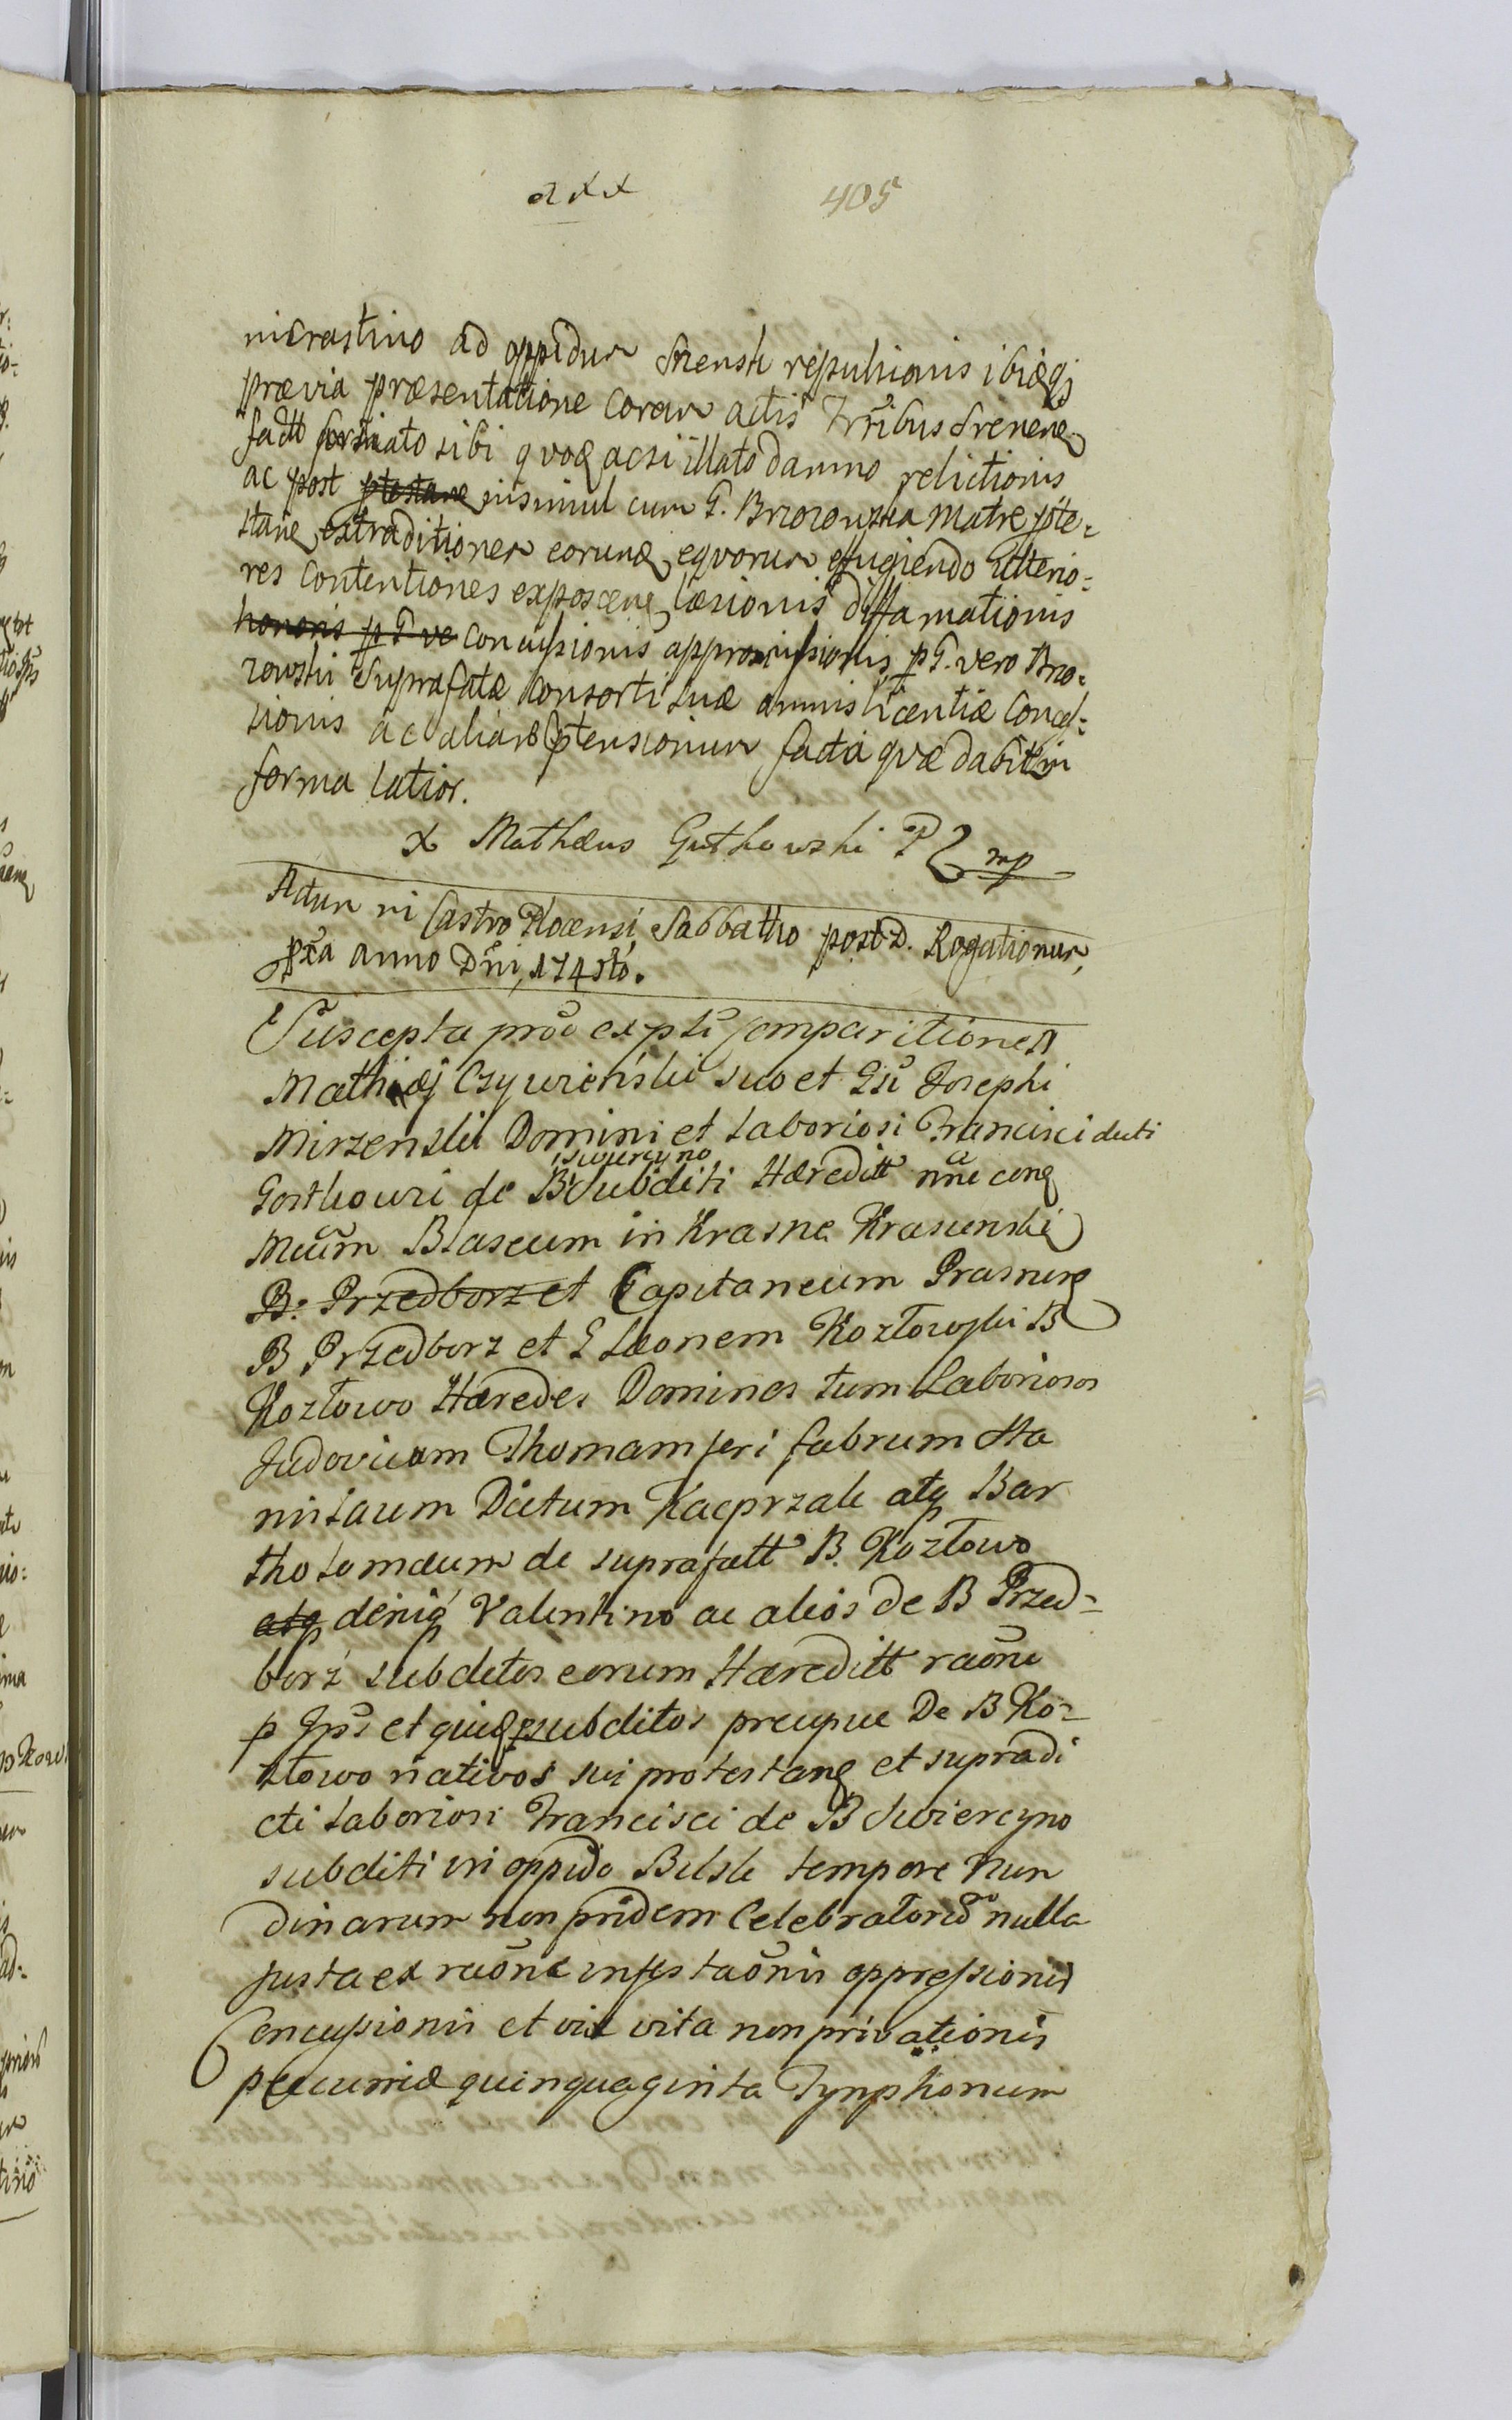 405
in crastino ad oppidum Srensk repulsionis ibidqȝ
prævia præsentatione coram actis Trribus Srenen
factt sibi qvoq acsi illato damno relictionis
ac post ptestane insimul cum G. Brzozowska Matre pte=
stane extraditionem eorund eqvorum effugiendo Ulterio=
res contentiones exposcen læsionis diffamationis
honoris p G ve concussionis appromissionis p G. vero Brzo=
zowski Suprafatæ Consorti suæ omnis licentiæ Conces=
sionis ac aliar ptensionum facta qvæ dabitur in
forma latior.
x Mathæus Gutkowski mp
Actum in Castro Plocensi Sabbatho post D. Rogationum,
pxa anno Dni, 174
Suscepta pro exptu comparitione N
Mathiæ Czywiński suo et Gsi Josephi
Mirzenski Domini et Laboriosi Francisci dicti
Swiercyno
Gostkowi de B Subditi Hæreditt nne cong
Mcum Blasium in Krasne Krasinski
B. Przedborz et Capitaneum Prasnens
B Przedborz et G Leonem Kozłowski B
Kozłowo Hæredes Dominos tum Laboriosos
Ludovicum Thomam feri fabrum Sta
nislaum Dictum Kacprzak atq Bar
tholomæum de suprafatt B. Kozłowo
atq deniq Valentino ac alios de B Przed=
borz subditos eorum Hæreditt raõne
p Ipsos et subditos precipue De B Ko=
złowo nativos sui protestang et supradi
cti Laboriosi Francisci de B Swiercyno
subditi in oppido Bilsk tempore Nun
dinarum non pridem Celebratorum nulla
justa ex raõne infestaõnis oppressionis
Concussionis et vix vita non privationis
pecuniæ quinquaginta Tynphonum